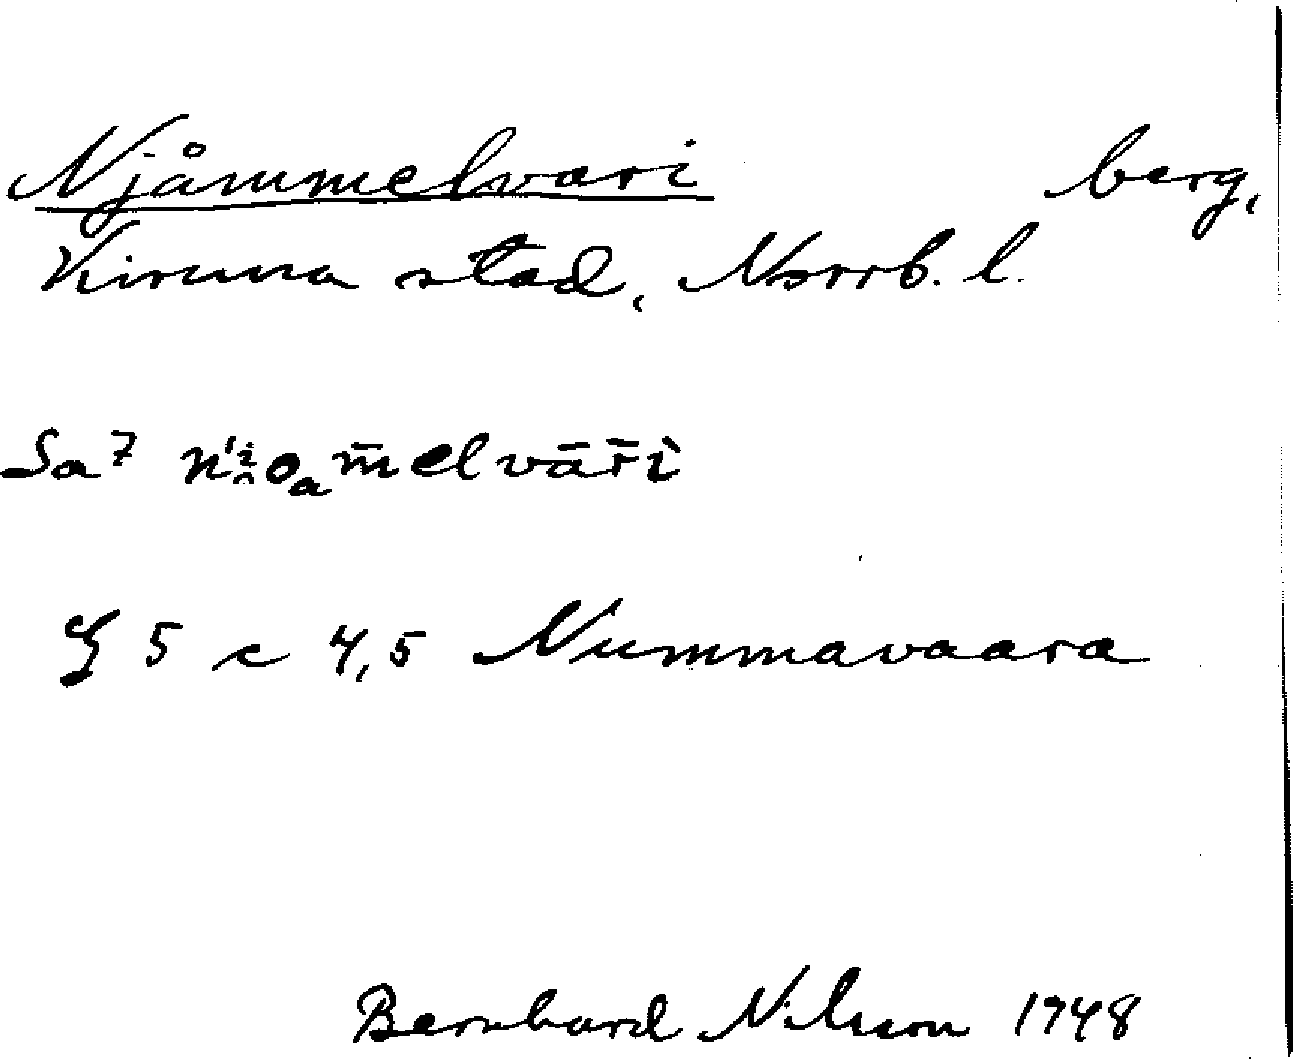 Njåmmelvari berg,
Kiruna stad, Norrb. l.
Sa 7
§ 5 c 4,5 Nummavaara
Bernhard Nilsson 1948